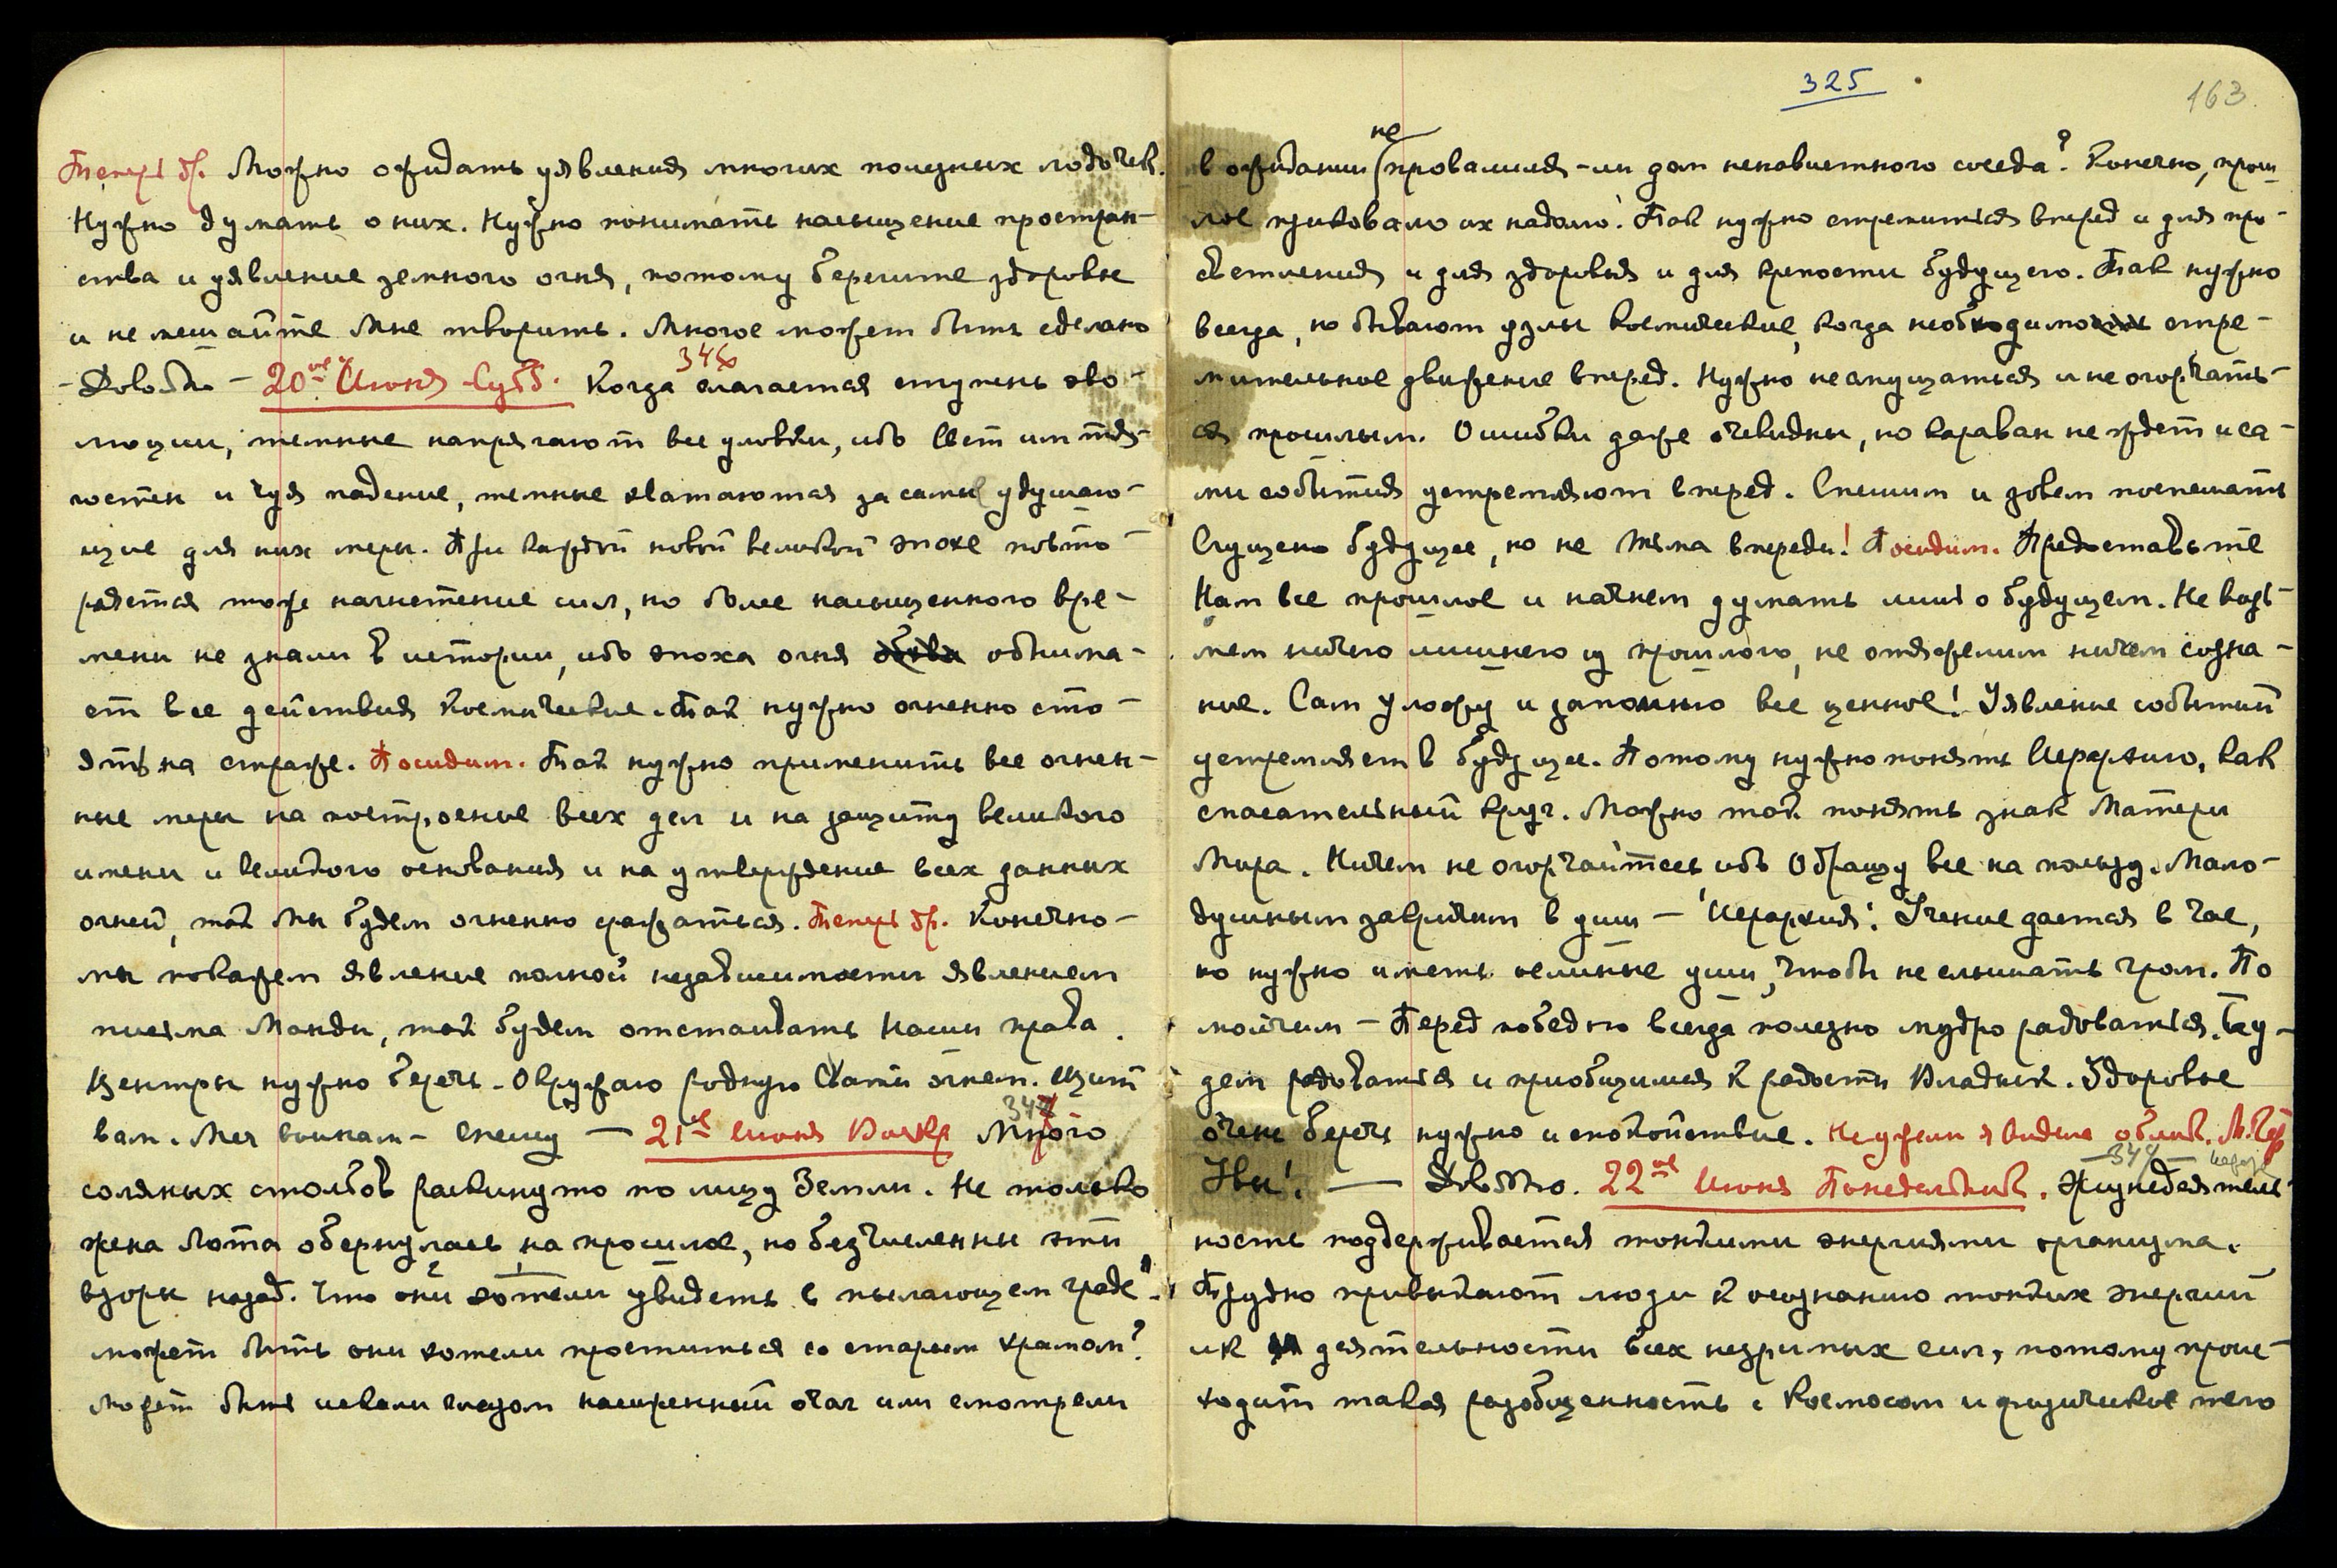 Теперь др. Можно ожидать уявления многих полезных лодочек.
Нужно думать о них. Нужно понимать насыщение простран-
ства и уявление земного огня, потому берегите здоровье
и не мешайте Мне творить. Многое может быть сделано
- Довольно - 20ое Июня Субб. 346 Когда слагается ступень эво-
люции, темные напрягают все уловки, ибо Свет им тя-
гостен и чуя падение, темные хватаются за самые удушаю-
щие для них меры. При каждой новой великой эпохе повто-
ряется тоже нагнетение сил, но более насыщенного вре-
мени не знали в истории, ибо эпоха огня обнима-
ет все действия космические. Так нужно огненно сто-
ять на страже. Посидим. Так нужно применить все огнен-
ные меры на построение всех дел и на защиту великого
имени и великого основания и на утверждение всех данных
огней, так мы будем огненно сражаться. Теперь др. Конечно -
мы покажем явление полной независимости явлением
письма Манди, так будем отстаивать Наши права.
Центры нужно беречь. Окружаю родную Свати огнем. Щит
вам. Меч воинам - Спешу — 21ое Июня Воскр 347 Много
соляных столбов раскинуто по лицу Земли. Не только
жена Лота обернулась на прошлое, но безчисленны эти
взоры назад. Что они хотели увидеть в пылающем граде?
может быть они хотели проститься со старым храмом?
Может быть искали глазом насиженный очаг или смотрели
325
163.
в ожидании не провалился-ли дом ненавистного соседа? Конечно, прош-
лое приковало их надолго! Так нужно стремиться вперед и для про-
светления и для здоровья и для крепости будущего. Так нужно
всегда, но бывают узлы космические, когда необходимо стре-
мительное движение вперед. Нужно не смущаться и не огорчать-
ся прошлым. Ошибки даже очевидны, но караван не ждет и са-
ми события устремляют вперед. Спешим и зовем поспешать
Сгущено будущее, но не тьма впереди! Посидим. Предоставьте
Нам все прошлое и начнем думать лишь о будущем. Не возь-
мем ничего лишнего из прошлого, не отяжелим ничем созна-
ние. Сам уложу и запомню все ценное! Уявление событий
устремляет в будущее. Потому нужно понять Иерархию, как
спасательный круг. Можно так понять знак Матери
Мира. Ничем не огорчайтесь ибо Обращу все на пользу. Мало-
душным закричим в уши - Иерархия! Учение дается в час,
но нужно иметь уши, чтобы не слышать гром. По
молчим - Перед победою всегда полезно мудро радоваться. Бу-
дем радоваться и приобщимся к радости Владык. Здоровье
очень беречь нужно и спокойствие. Неужели я видела облик.
Увы! — Довольно. 22ое Июня Понедельник. Жизнедеятель-
ность поддерживается тонкими энергиями организма.
Трудно привыкают люди к осознанию тонких энергий
и к деятельности всех незримых сил, потому проис-
ходит такая разобщенность с Космосом и физическое тело